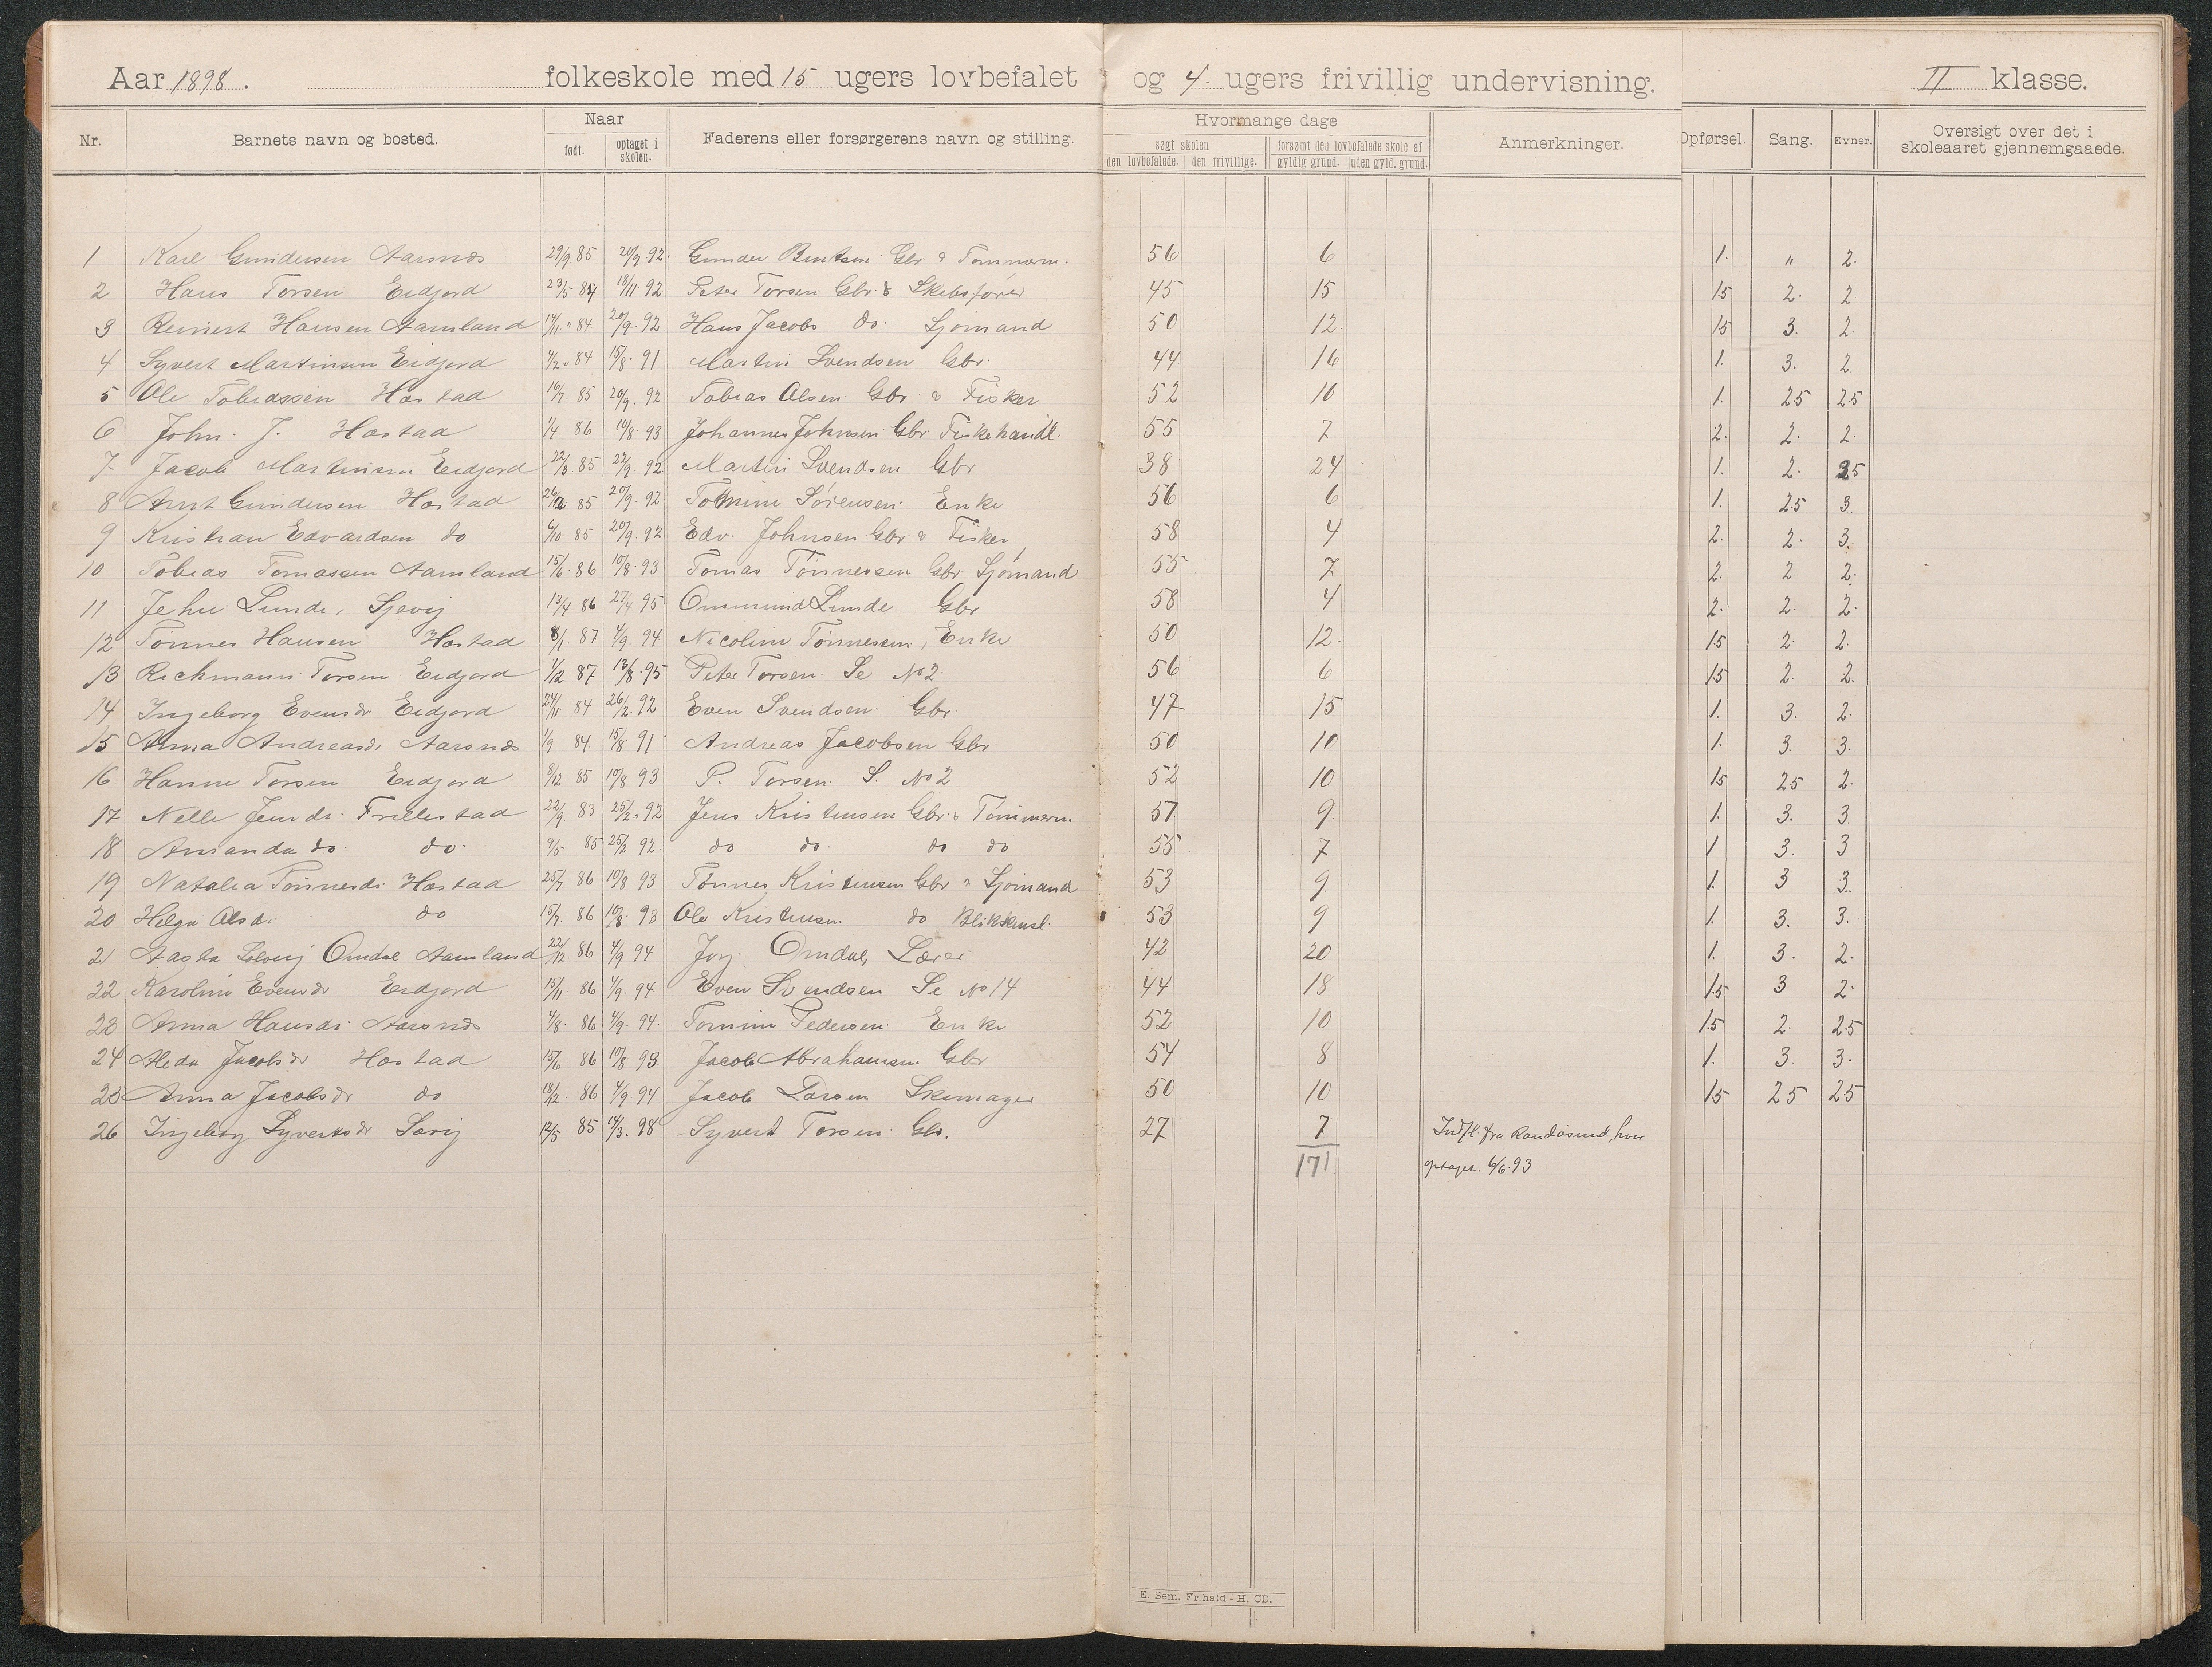 Aar 1898. folkeskole med 15 ugers lovbefalet og 4 ugers frivillig undervisning. II klasse.
Nr. Barnets navn og bosted. Naar Faderens eller forsørgerens navn og stilling. Hvormange dage Anmerkninger. Opførsel. Sang. Evner. Oversigt over det i skoleaaret gjennemgaaede.
født. optaget i skolen. søgt skolen forsømt den lovbefalede skole af
den lovbefalede. den frivillige. gyldig grund. uden gyld. grund.
1 Karl Gundersen Aarsnes 29/9 85 92. Gunder Bentsen Gbr & Tømmerm. 56 6 1. " 2.
2 Hans Torsen Eidjord 23/5 84 18/11 92 Peter Torsen Gbr & Skibsfører 45 15 15 2. 2
3 Reinert Hansen Aamland 14/11 84 20/9. 92 Hans Jacobs do. Sjømand 50 12. 15 3. 2.
4 Syvert Martinsen Eidjord 4/2 84 15/8. 91 Martin Svendsen Gbr. 44 16 1. 3. 2
5 Ole Tobiassen Hæstad 16/7. 85 20/9. 92 Tobias Olsen Gbr & Fisker 52 10 1. 25 25
6 John. J. Hæstad 1/4. 86 10/8. 93 Johannes Johnsen Gbr Fiskehandl. 55 7 2. 2. 2.
7 Jacob Martinsen Eidjord 22/3. 85 22/9. 92 Martin Svendsen Gbr 38 24 1. 2. 25
8 Arnt Gundersen Hæstad 85 20/9. 92 Tomine Sørensen Enke 56 6 1. 25 3.
9 Kristian Edvardsen do 6/10 85 20/9. 92 Edv. Johnsen Gbr & Fisker 58 4 2. 2. 3.
10 Tobias Tomassen Aamland 15/6. 86 10/8. 93 Tomas Tønnessen Gbr Sjømand 55 7 2. 2 2.
11 Jehu Lunde, Sjevig 13/4. 86 27/4 95 Ommund Lunde Gbr 58 4 2. 2. 2.
12 Tønnes Hansen Hæstad 8/1. 87 4/9. 94 Nicoline Tønnessen, Enke 50 12. 15 2. 2.
13 Rickmann Torsen Eidjord 1/12 87 13/8. 95 Peter Torsen. Se No 2. 56 6 15 2. 2.
14 Ingeborg Evensdr Eidjord 24/11 84 26/2. 92 Even Svendsen Gbr. 47 15 1. 3. 2.
15 Anna Andreasd. Aarsnes 1/9 84 15/8. 91 Andreas Jacobsen Gbr. 50 10 1. 3. 3.
16 Hanne Torsen Eidjord 8/12 85 10/8 93 P. Torsen. S. No 2 52 10 15 25 2.
17 Nelle Jensdr. Frellestad 22/9 83 25/2. 92 Jens Kristensen Gbr & Tømmerm. 51 9 1. 3. 3.
18 Amanda do. do. 9/5 85 25/2 92. do do. do do 55 7 1 3. 3
19 Natalia Tønnesdr. Hæstad 25/7. 86 10/8 93 Tønnes Kristensen Gbr & Sjømand 53 9 1. 3 3.
20 Helga Olsd. do 15/7. 86 10/8. 93 Ole Kristensen do Blikkensl. 53 9 1. 3. 3.
21 Aasta Solveig Omdal Aamland 22/12. 86 4/9 94 Jørg. Omdal, Lærer 42 20 1. 3. 2.
22 Karoline Evensdr Eidjord 15/11. 86 4/9. 94. Even Svendsen Se No 14 44 18 15 3 2.
23 Anna Hansdr. Aarsnes 4/8. 86 4/9. 94. Tomine Pedersen Enke 52 10 15 2. 25
24 Aleda Jacobsdr Hæstad 15/6 86 10/8 93. Jacob Abrahamsen Gbr 54 8 1. 3. 3.
25 Anna Jacobsdr do 18/12. 86 4/9. 94 Jacob Larsen Skomager 50 10 15 25 25
26 Ingeborg Syvertsdr Sævig 12/5 85 14/3. 98 Syvert Torsen Gbr. 27 7 Indfl. fra Randøsund, hvor
171 optaget. 6/6. 93
E. Sem. Fr.hald - H. CD.